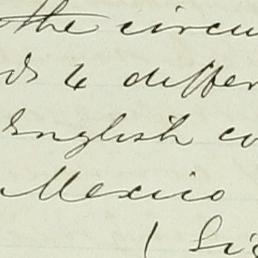 the circu
to differ
English co
Mexico
( Si